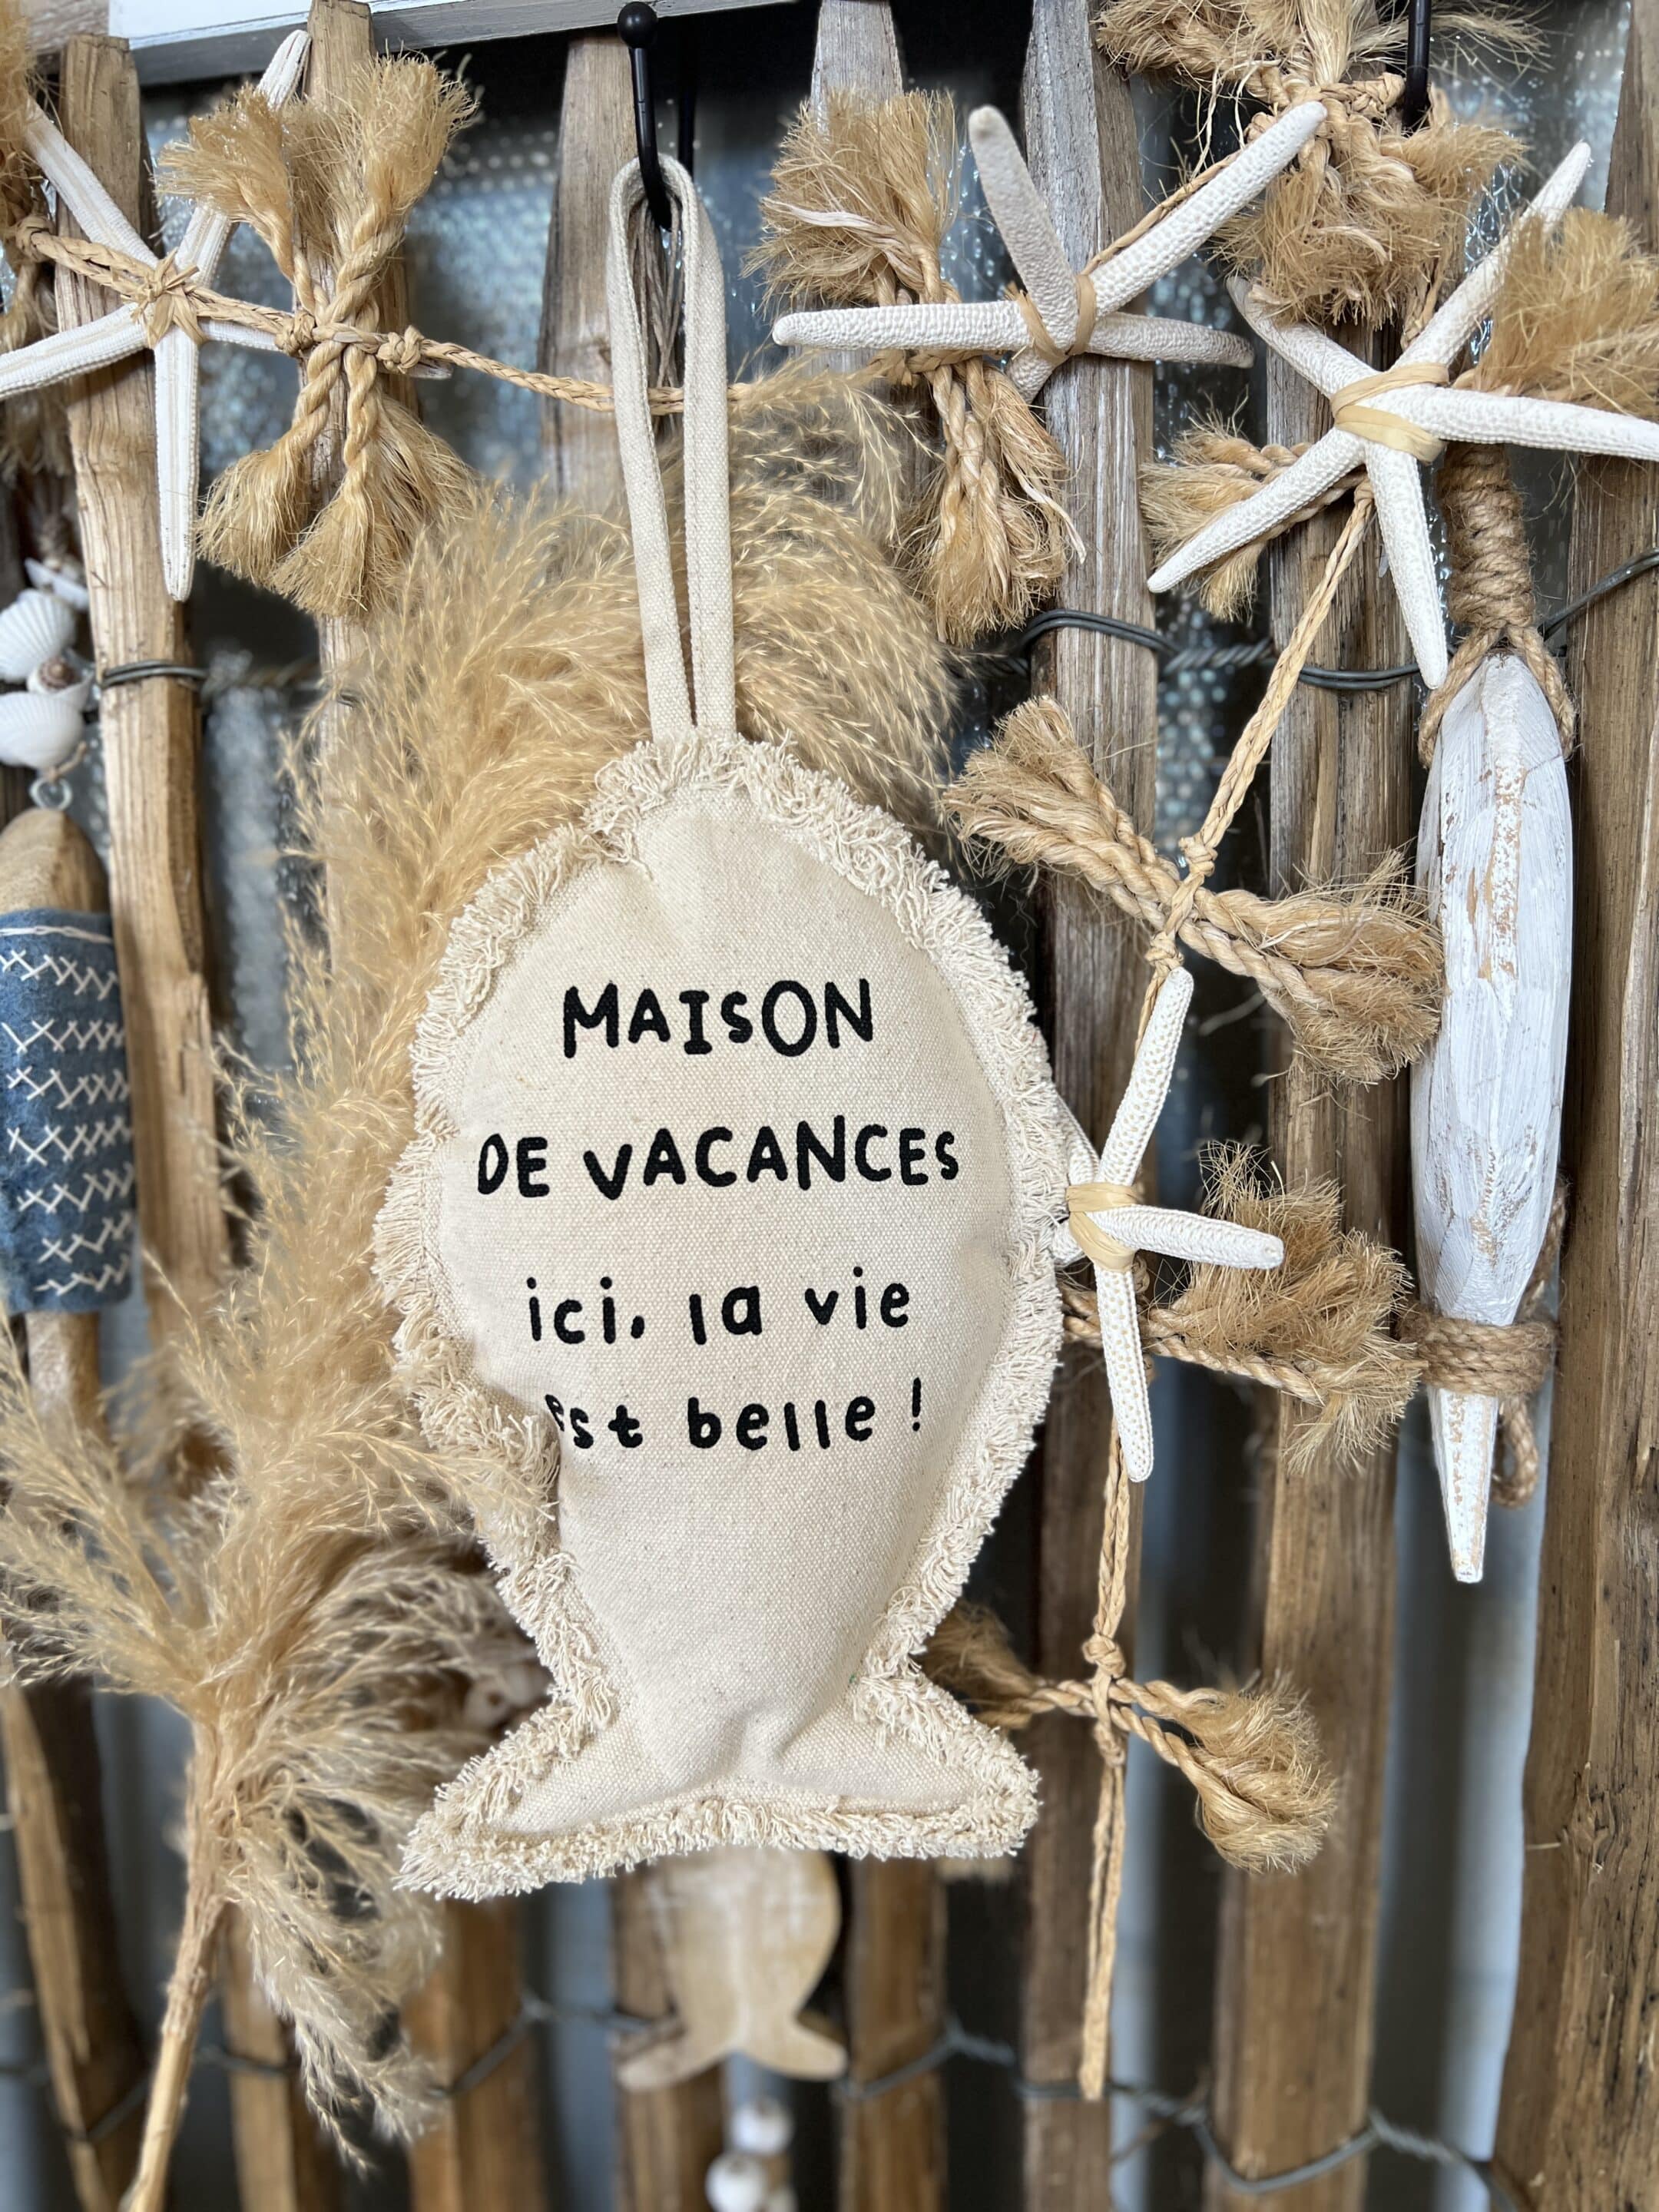 MAISON
DE VACANCES
ici, la vie
est belle !